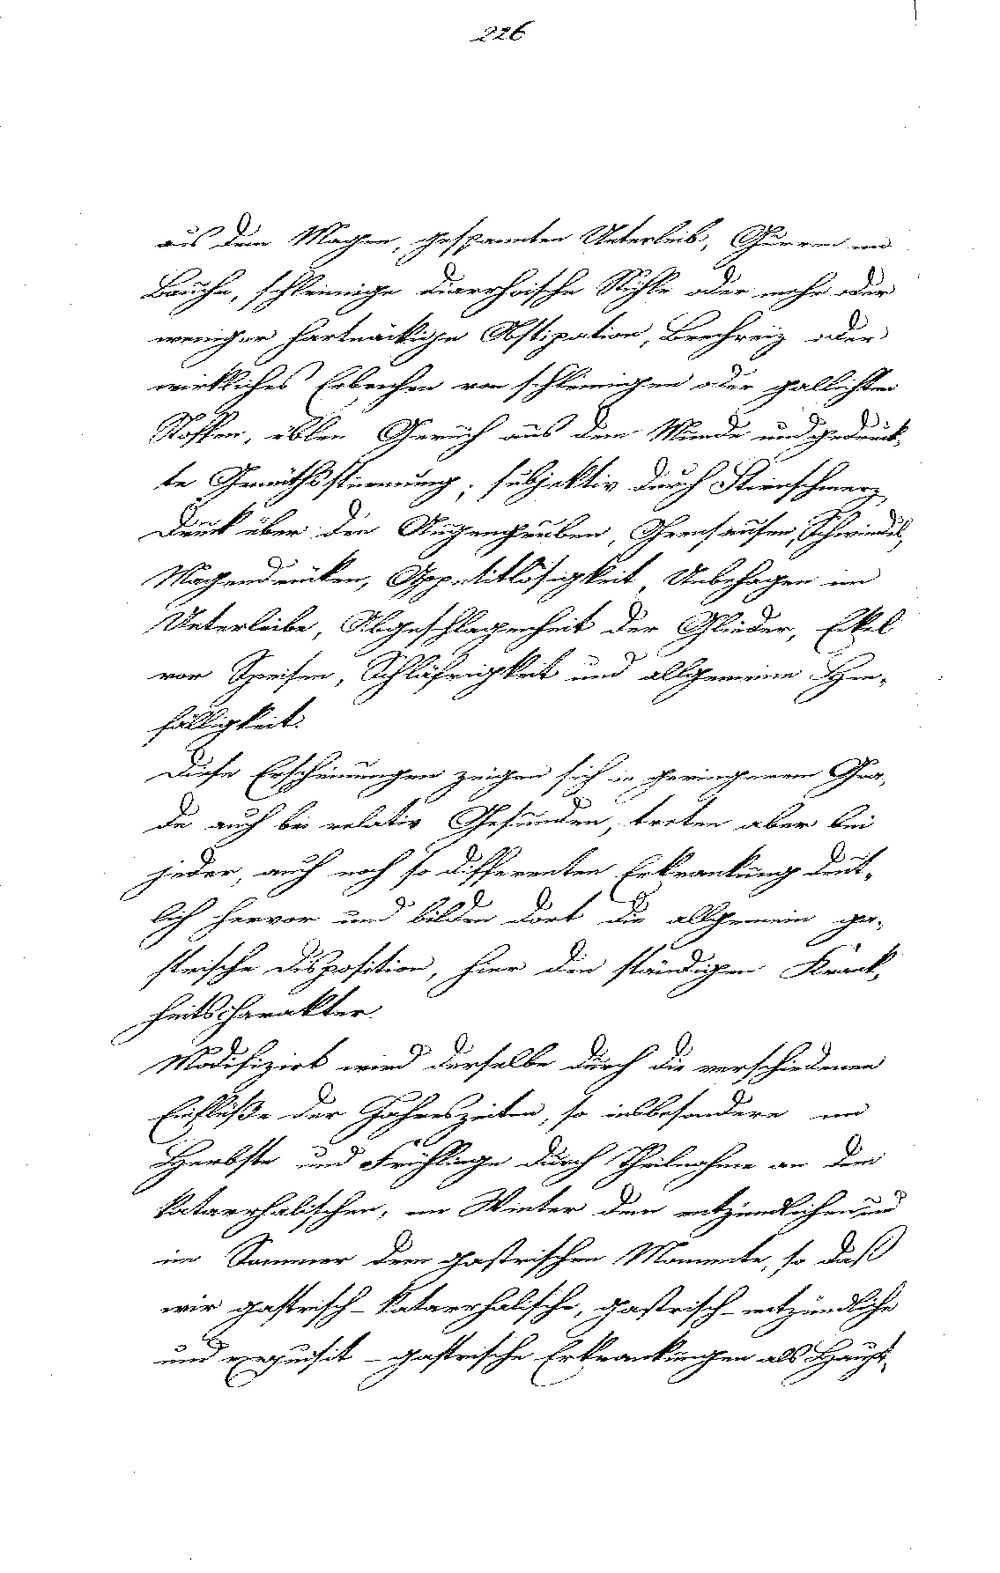 226
aus dem Magen, gespannten Unterleib, Gurren im
Bauche, schleimige diarrhoische Stühle oder mehr oder
weniger hartnäckige Obstipation, Brechreiz oder
wirkliches Erbrechen von schleimigen oder gallichten
Stoffen, üblen Geruch aus dem Munde und gedrück-
te Gemüthsstimmung; subjektiv durch Stirnschmerz,
Druck über den Augengruben, Ohrensausen, Schwindel,
Magendrücken, Appetitlosigkeit, Unbehagen im
Unterleibe, Abgeschlagenheit der Glieder, Eckel
vor Speisen, Schläfrigkeit und allgemeine Hin-
fälligkeit.
Diese Erscheinungen zeigen sich in geringerem Gra-
de auch bei relativ Gesunden, treten aber bei
jeder, auch noch so differenten Erkrankung deut-
lich hervor und bilden dort die allgemein ga-
strische Disposition, hier den ständigen Krank-
heitscharakter.
Modifizirt wird derselbe durch die verschiedenen
Einflüße der Jahreszeiten, so insbesondere im
Herbste und Frühlinge durch Theilnahme an dem
katarrhalischen, im Winter dem entzündlichen und
im Sommer dem gastrischen Momente, so daß
wir gastrisch-katarrhalische, gastrisch-entzündliche
und exquisit-gastrische Erkrankungen als Haupt-